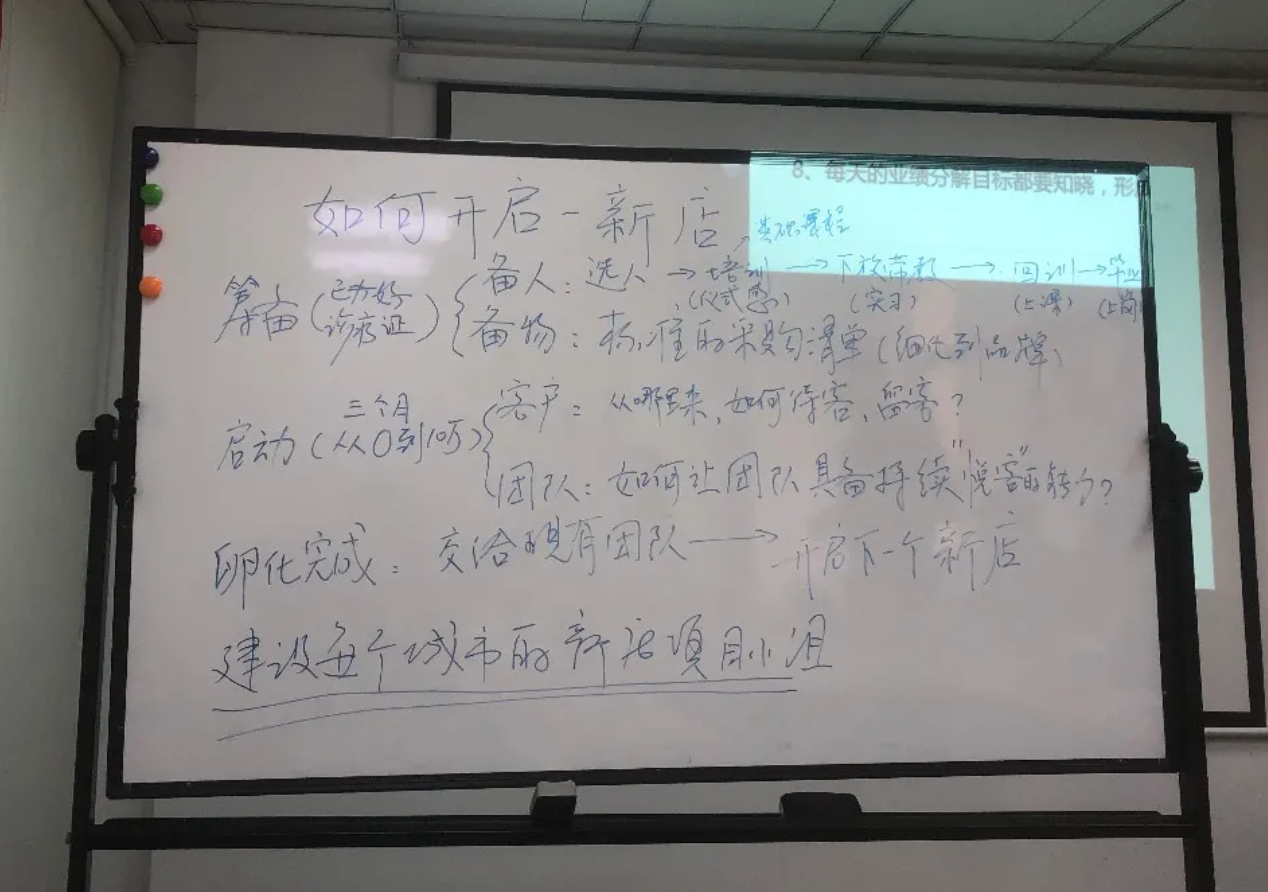 8、每天的业绩分解目标都要知晓，形
如何开启一新店
基础课程
筹备(已办好诊疗证)
备人：选人→培训→下放带教→回训→毕业
(仪式感) (实习) (上课) (上岗
备物：标准的采购清单(细化到品牌)
启动(三个月从0到10万)
客户：从哪里来,如何待客,留客?
团队：如何让团队具备持续"悦客"的能力?
孵化完成：交给现有团队→开启下一个新店
建设每个城市的新店项目小组